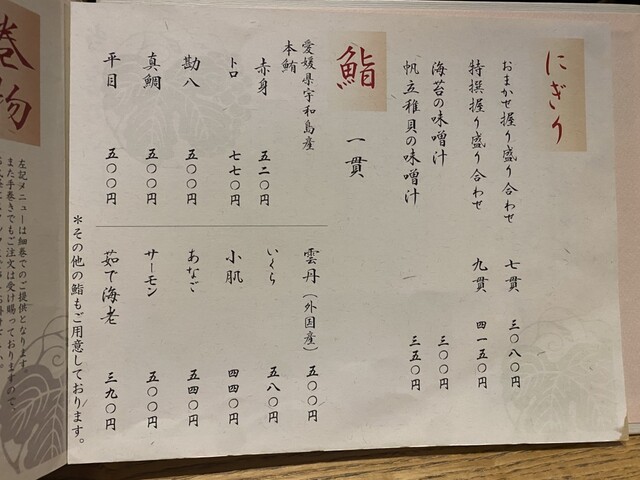 にぎり
おまかせ握り盛り合わせ 七貫 三〇八〇円
特撰握り盛り合わせ 九貫 四一五〇円
海苔の味噌汁 三〇〇円
帆立稚貝の味噌汁 三五〇円
鮨 一貫
愛媛県宇和島産
本鮪
赤身 五二〇円
トロ 七七〇円
勘八 五〇〇円
真鯛 五〇〇円
平目 五〇〇円
雲丹（外国産） 五〇〇円
いくら 五八〇円
小肌 四四〇円
あなご 五四〇円
サーモン 五〇〇円
茹で海老 三九〇円
＊その他の鮨もご用意しております。
巻物
左記メニューは細巻でのご提供となります。
また手巻きでもご注文は受け賜っておりますので、